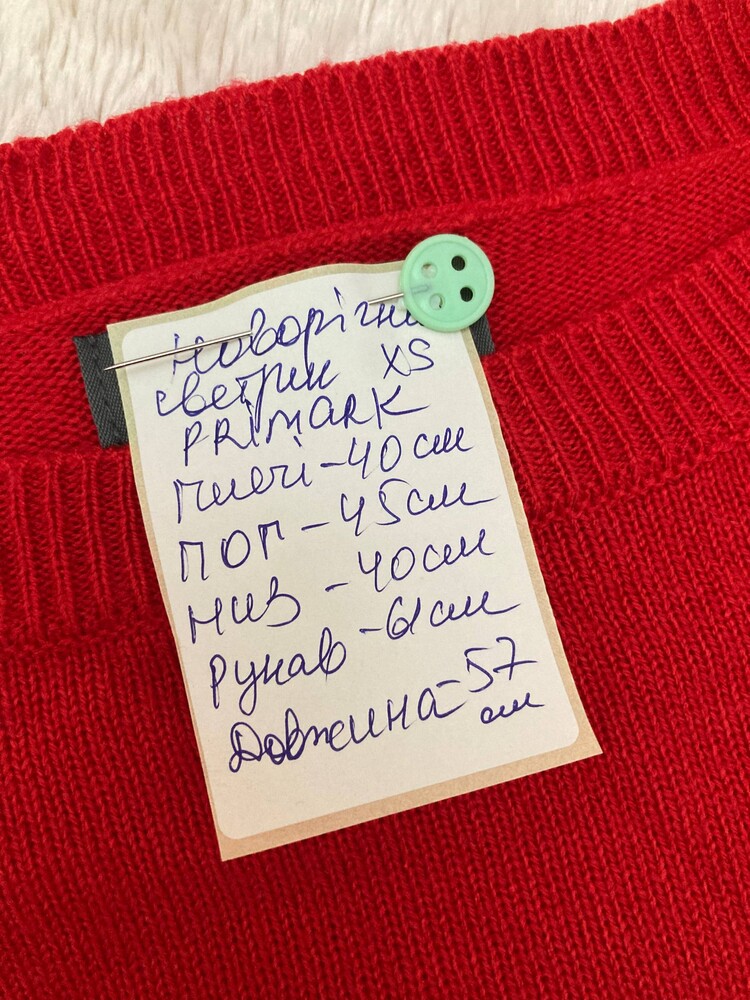 Новорічни
светрик XS
PRIMARK
Плечі-40см
ПОГ-45см
низ-40см
рукав-61см
Довжина-57
см